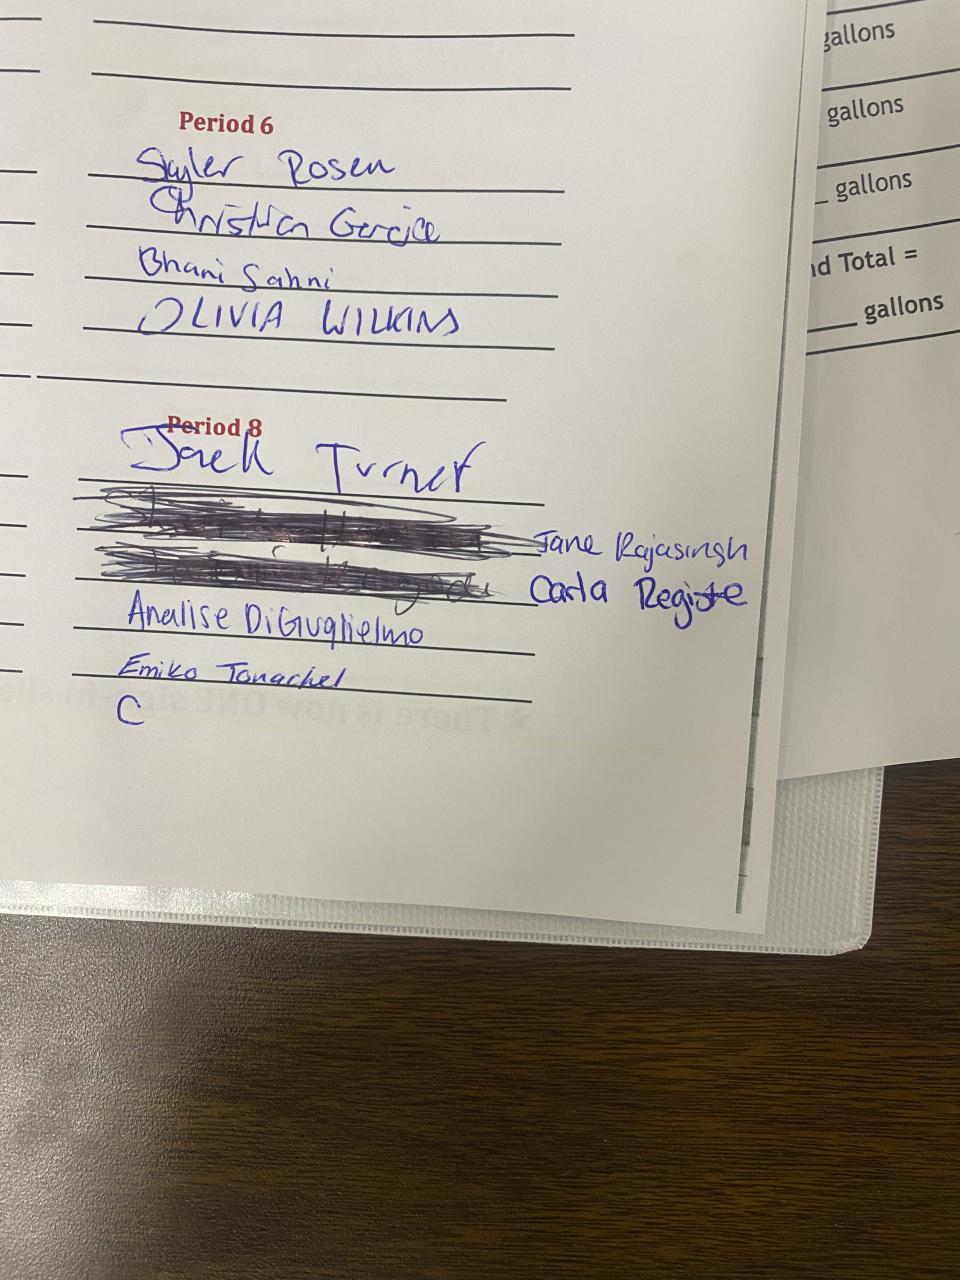 Period 6
Skyler Rosen
Christian Garcia
Bhani Sahni
OLIVIA WILKINS
Period 8
Jack Turner
Jane Rajasingh
Carla Registe
Analise DiGuglielmo
Emiko Tonachel
C
gallons
gallons
gallons
nd Total =
gallons